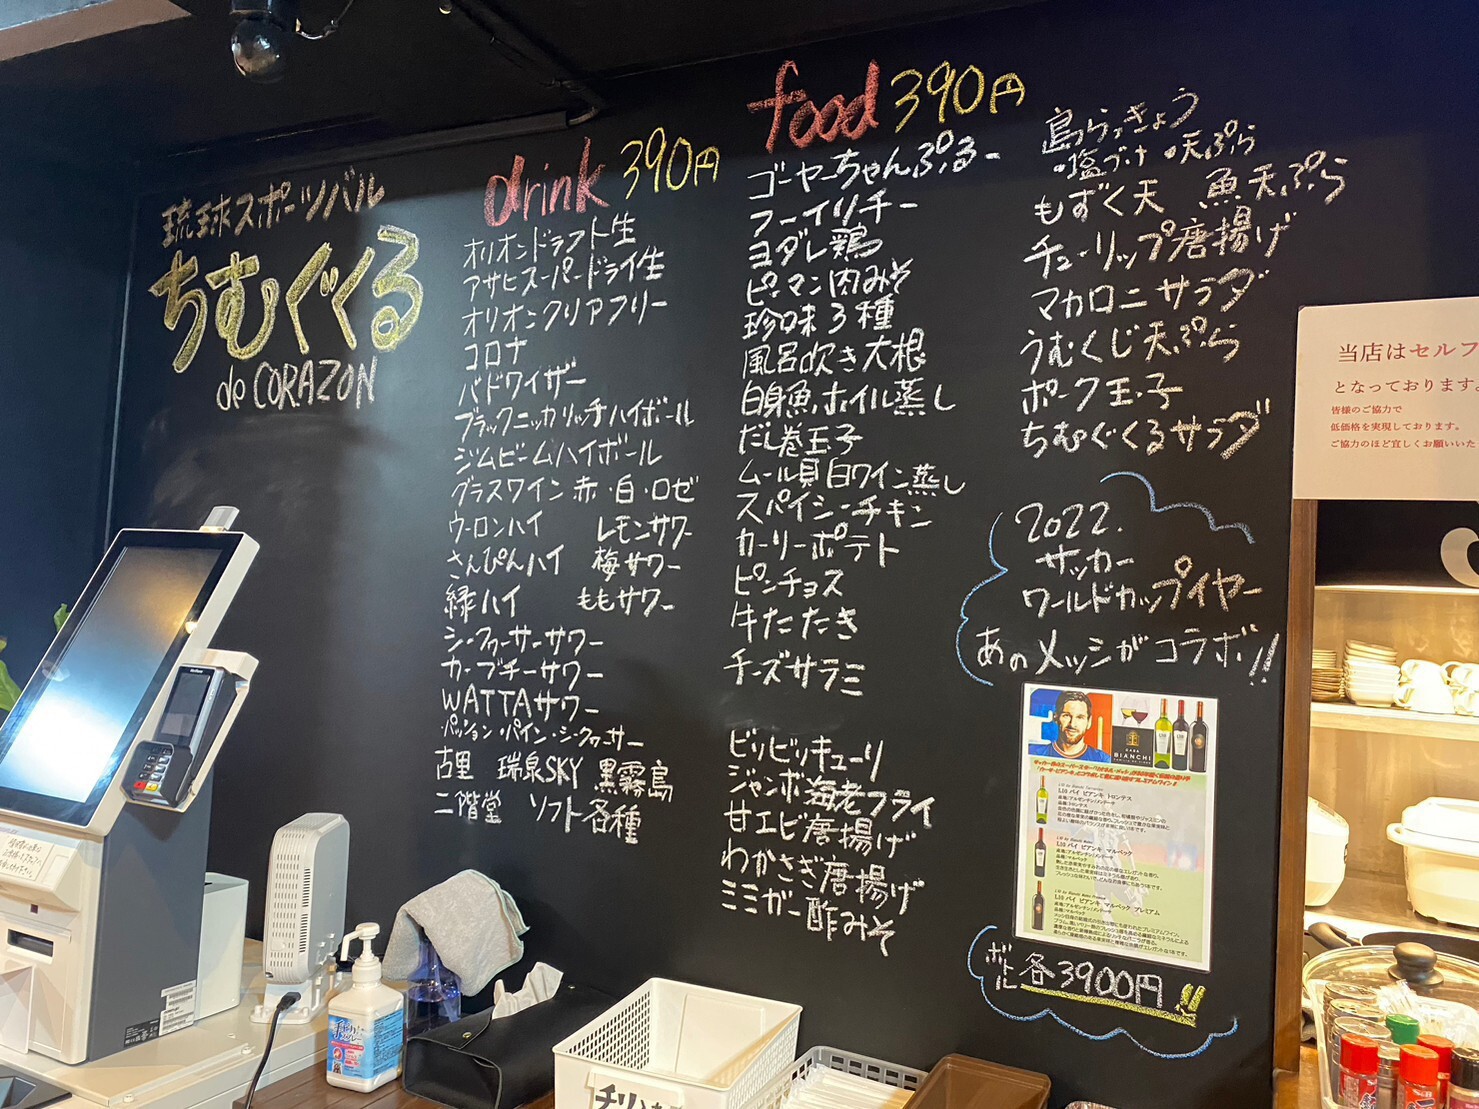 琉球スポーツバル
ちむぐくる
de CORAZON
drink 390円
オリオンドラフト生
アサヒスーパードライ生
オリオンクリアフリー
コロナ
バドワイザー
ブラックニッカリッチハイボール
ジムビームハイボール
グラスワイン 赤・白・ロゼ
ウーロンハイ レモンサワー
さんぴんハイ 梅サワー
緑ハイ ももサワー
シークヮーサーサワー
カーブチーサワー
WATTAサワー
パッション・パイン・シークヮーサー
古里 瑞泉SKY 黒霧島
二階堂 ソフト各種
food 390円
ゴーヤーちゃんぷるー
フーイリチー
ヨダレ鶏
ピーマン肉みそ
珍味3種
風呂吹き大根
白身魚ホイル蒸し
だし巻玉子
ムール貝白ワイン蒸し
スパイシーチキン
カーリーポテト
ピンチョス
牛たたき
チーズサラミ
ビリビリキューリ
ジャンボ海老フライ
甘エビ唐揚げ
わかさぎ唐揚げ
ミミガー酢みそ
島らっきょう
・塩づけ ・天ぷら
もずく天 魚天ぷら
チューリップ唐揚げ
マカロニサラダ
うむくじ天ぷら
ポーク玉子
ちむぐくるサラダ
2022.
サッカー
ワールドカップイヤー
あのメッシがコラボ!!
CASA
BIANCHI
L10 バイ ビアンキ トロンテス
L10 バイ ビアンキ マルベック
L10 バイ ビアンキ マルベック プレミアム
ボトル 各3900円!!
当店はセルフ
となっております。
皆様のご協力で
低価格を実現しております。
ご協力のほど宜しくお願いいた